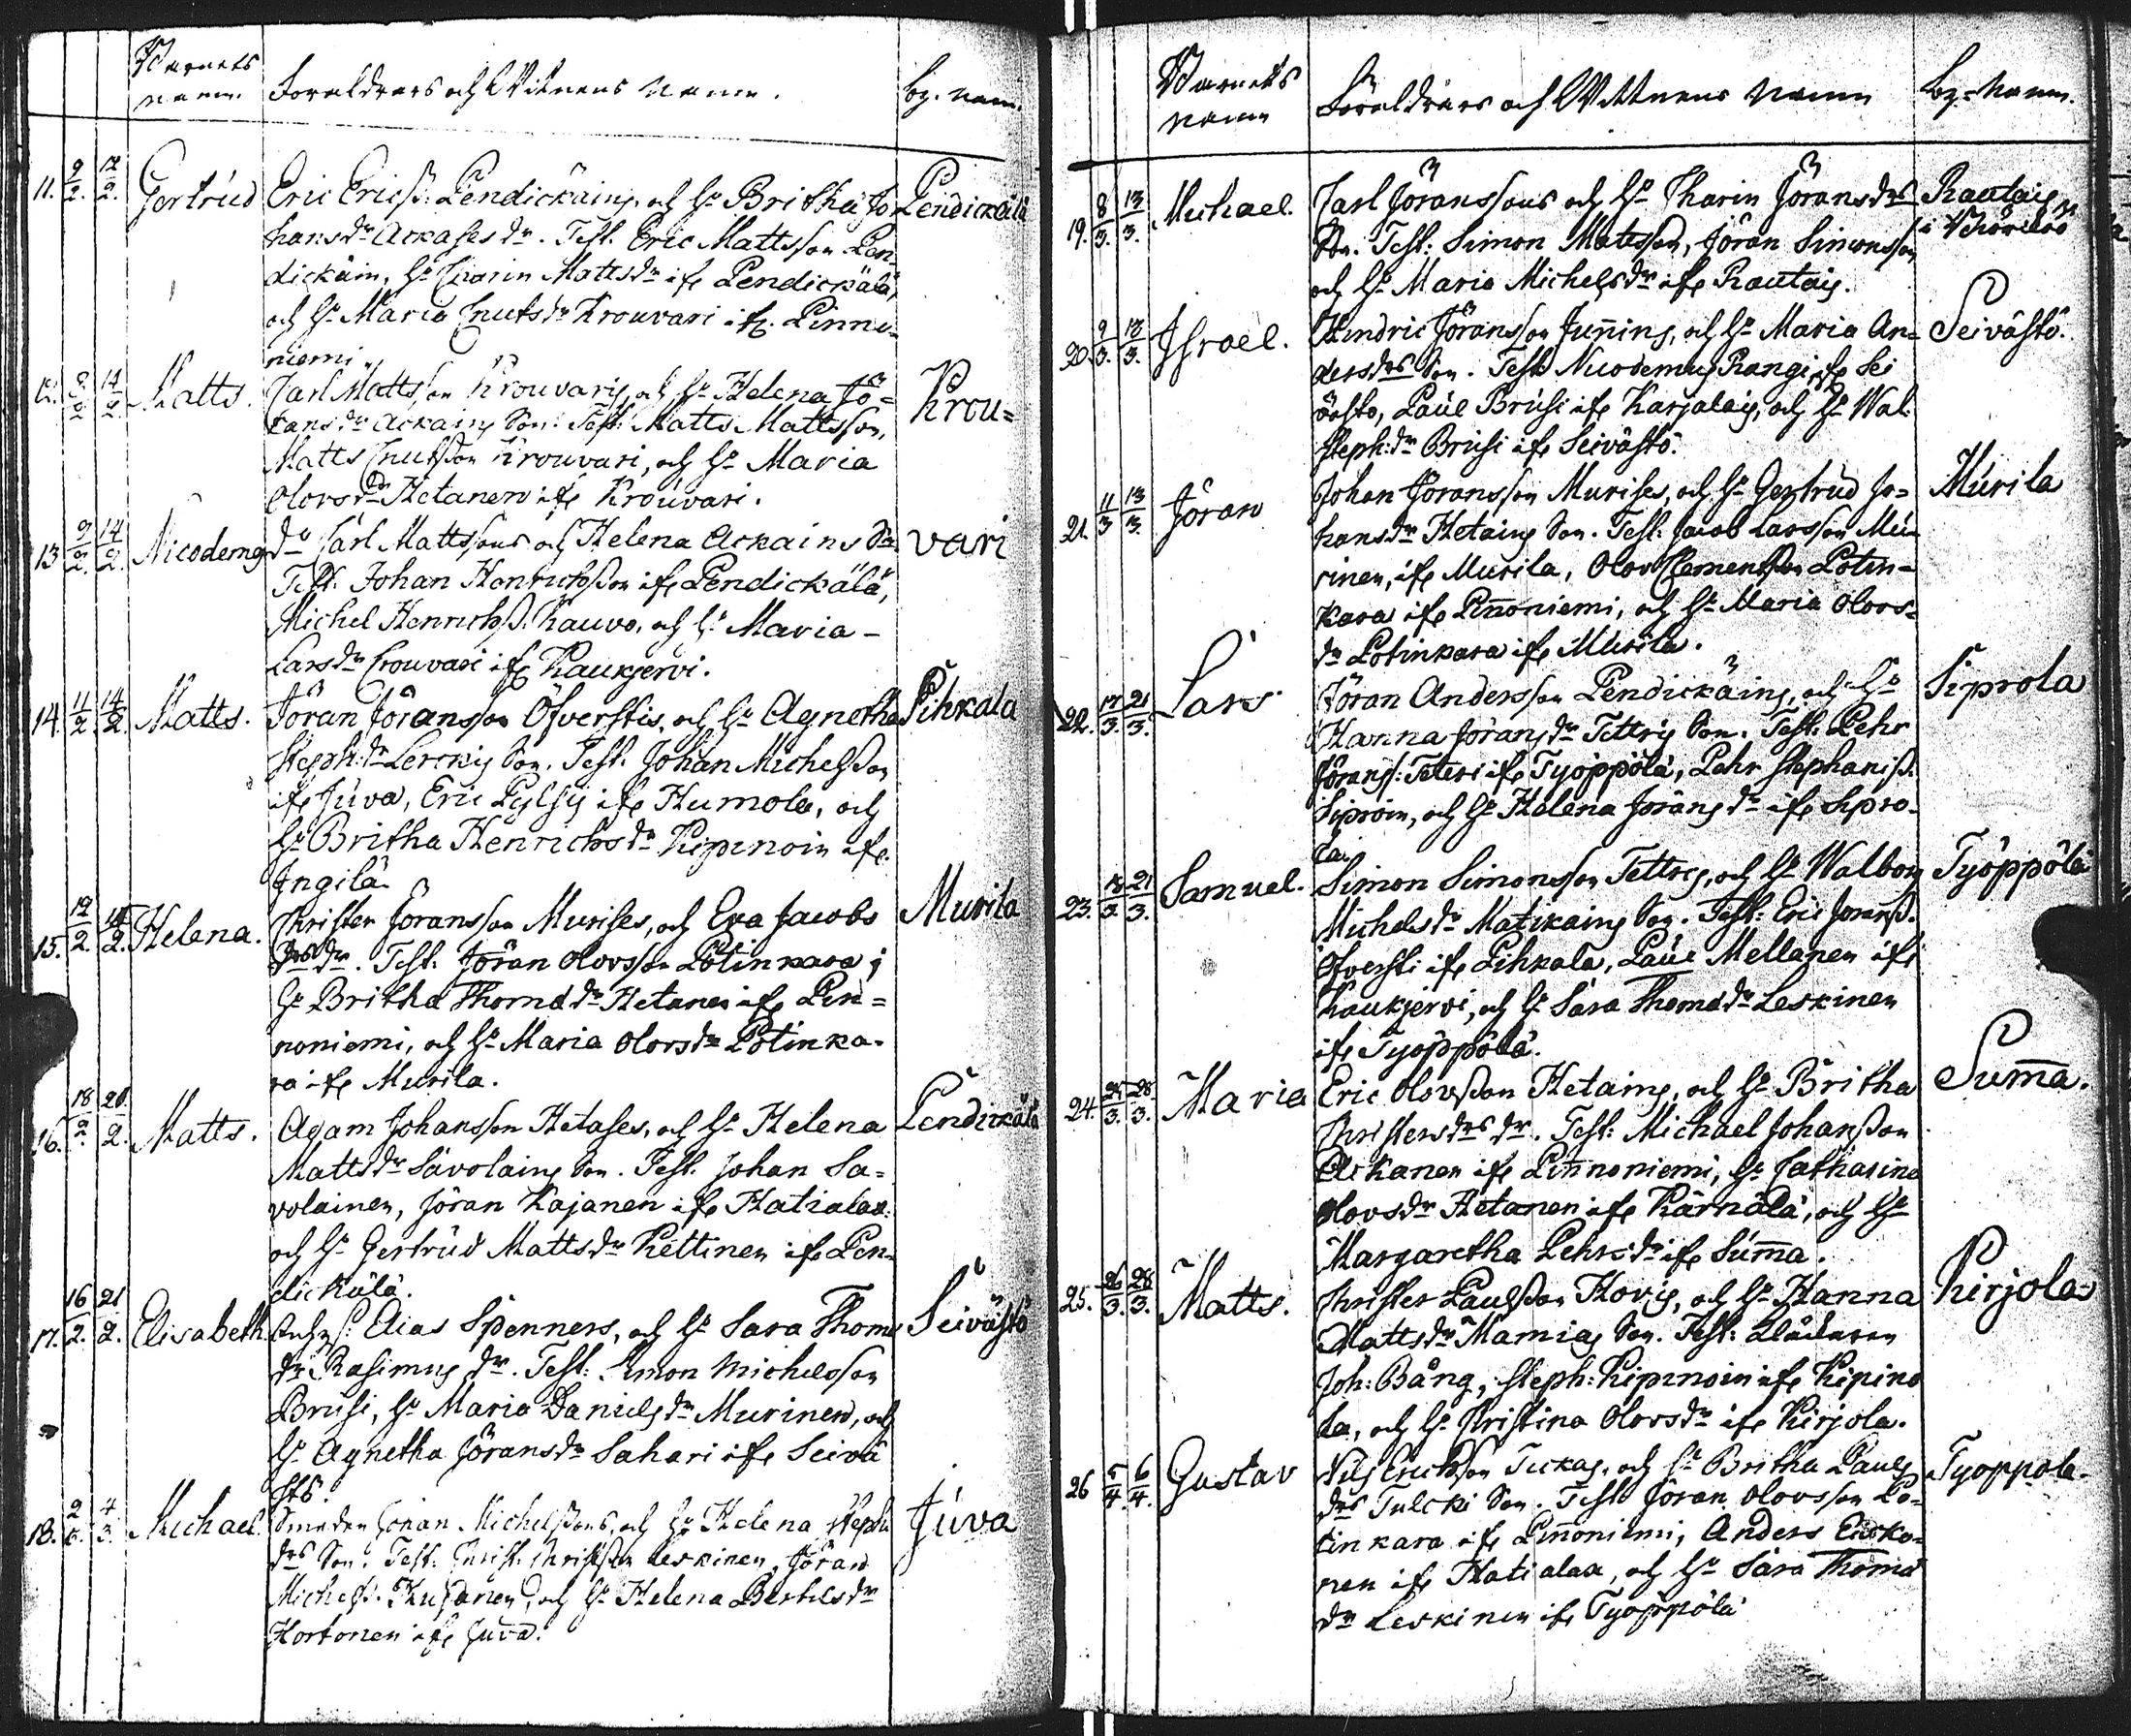 Barnets
namn. Föräldrars och Witnens Namn. by. nam.
11. 9/2. 12/2. Gertrud Eric Ericß: Pendickäins, och h:o Britha Jo Pendickälä
hans dr Ackases dr. Test. Eric Mattsson Pen-
dickäin, h:o Carin Matts dr ifr Pendickälä,
och h:o Maria Cnuts dr Krouvari ifr. Pinno-
niemi
12. 8/2 14/2 Matts. Carl Mattsson Krouvaris, och h:o Helena Jö- Krou=
rans dr Ackains Son. Test: Matts Mattsson,
Matts Cnutsson Krouvari, och h:o Maria
Olovs dr Hetanen ifr Krouvari.
13 9/2. 14/2. Nicodemg do Carl Mattssons och Helena Ackains Son vari
Test. Johan Henrichsson ifr Pendickälä,
Michel Henrichß. Kauvo, och h:o Maria -
Lars dr Crouvari ifr Kaukjervi.
14. 11/2 14/2. Matts. Jöran Jöransson Öfverstis, och h:o Agnetha Pihkala
Steph: dr Lerckis Son. Test. Johan Michelsson
ifr Juva, Eric Pylsy ifr Humola, och
h:o Britha Henrichs dr Kipinoin ifr
Ingilä
15. 12/2. 14/2. Helena. Christer Joransson Murises, och Eva Jacobs Murila
drs dr. Test. Jöran Olovsson Potinkara,
h:o Britha Thoma dr Hetanen ifr Pin=
noniemi, och h:o Maria Olovs dr Potinka-
ra ifr Murila.
16. 18/2. 20/2. Matts. Agam Johansson Hetases, och h:o Helena Pendickälä
Matts dr Savolains Son. Test. Johan Sa=
volainen, Jöran Kajanen ifr Hatialax
och h:o Gertrud Matts dr Kettinen ifr Pen-
dickälä.
17. 16/2. 21/2. Elisabeth Elias Spenners, och h:o Sara Thoma Seivästö
dr Rasimus dr. Test: Simon Michelsson
Brusi, h:o Maria Daniels dr Murinen, och
h:o Agnetha Jörans dr Sahari ifr Seivä
stö.
18. 2/3. 4/3. Michael. Smeden Johan Michelssons, och h:o Helena Steph Juva
drs Son. Test. Christ. Christsson Leskinen, Jöran
Michelß. Kusanen, och h:o Helena Bertils dr
Hortonen ifr Juva.
Barnets
namn Föräldrars och Wittnens Namn by-Namn.
19. 8/3. 13/3. Michael. Carl Jöranssons och h:o Karin Jörans drs Rautais
Son. Test: Simon Matsson, Jöran Simonsson
och h:o Maria Michels dr ifr Rautais.
20. 9/3. 13/3. Israel. Hindric Jöransson Juñins, och h:o Maria An= Seivästö.
ders drs Son. Test. Nicodemus Rangi ifr Sei
västö, Paul Brusi ifr Karjalais, och h:o Wal
Steph: dr Brusi ifr Seivästö.
21. 11/3 13/3. Jöran Johan Jöransson Murises, och h:o Gertrud Jo= Murila
hans dr Hetains Son. Test. Jacob Larsson Mu-
rinen, ifr Murila, Olov Clementsson Potin-
kara ifr Piñoniemi, och h:o Maria Olovs=
dr Potinkara ifr Murila.
22. 17/3. 21/3. Lars Jöran Andersson Pendickäins, och h:o Siprola
Hanna Jörans dr Tettris Son. Test. Pehr
Jöranß: Teteri ifr Työppölä, Pehr Stephanß.
Siproin, och h:o Helena Jörans dr ifr Sipro-
la.
23. 18/3. 21/3. Samuel. Simon Simonsson Tettres, och h:o Walbor Työppölä
Michels dr Matikains Son. Test: Eric Joranß.
Öfversti ifr Pihkala, Paul Mellanen ifr
Kaukjervi, och h:o Sara Thoma dr Leskinen
ifr Työppölä.
24. 24/3. 28/3. Maria Eric Olovsson Hetains, och h:o Britha Sum̃a.
Christers drs dr. Test: Michael Johansson
Ackanen ifr Pinnoniemi, h:o Catharina
Olovs dr Hetanen ifr Kärnälä, och h:o
Margaretha Pehrs dr ifr Sum̃a.
25. 26/3. 28/3. Matts. Christer Paulsson Hovis, och h:o Hanna Kirjola
Matts dr Mamias Son. Test:
Joh: Bång, Steph: Kipinoin ifr Kipino
la, och h:o Christina Olovs dr ifr Kirjola.
26 5/4. 6/4. Gustav Nils Ericksson Tickas, och h:o Britha Pauls Tyoppola.
drs Tulcki Son. Test. Jöran Olovsson Po-
tinkara ifr Piñoniemi, Anders
nen ifr Hatialaa, och h:o Sara Thoma
dr Leskinen ifr Tyoppölä